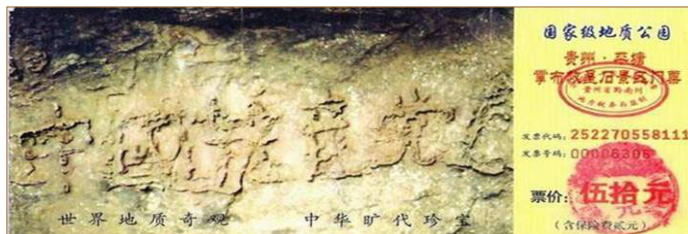 中國共產党亡
世界地质奇观 中华旷代珍宝
国家级地质公园
贵州·平塘
掌布藏字石景区门票
贵州省黔南州
发票代码: 252270558111
发票号码: 00006306
票价: 伍拾元
(含保险费贰元)